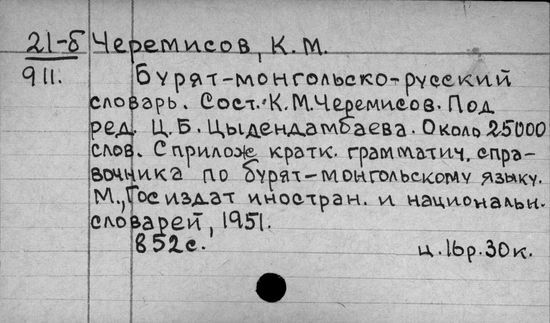 21-б Черемисов, К. М.
911.
Бурят-монгольско-русский
словарь. Сост. К.М.Черемисов. Под
ред. Ц. Б. Цыдендамбаева. Около 25000
слов. С прилож кратк. грамматич. спра-
вочника по бурят-монгольскому языку.
М., Госиздат иностран. и националь-
словарей, 1951.
852с. ц. 16р. 30к.